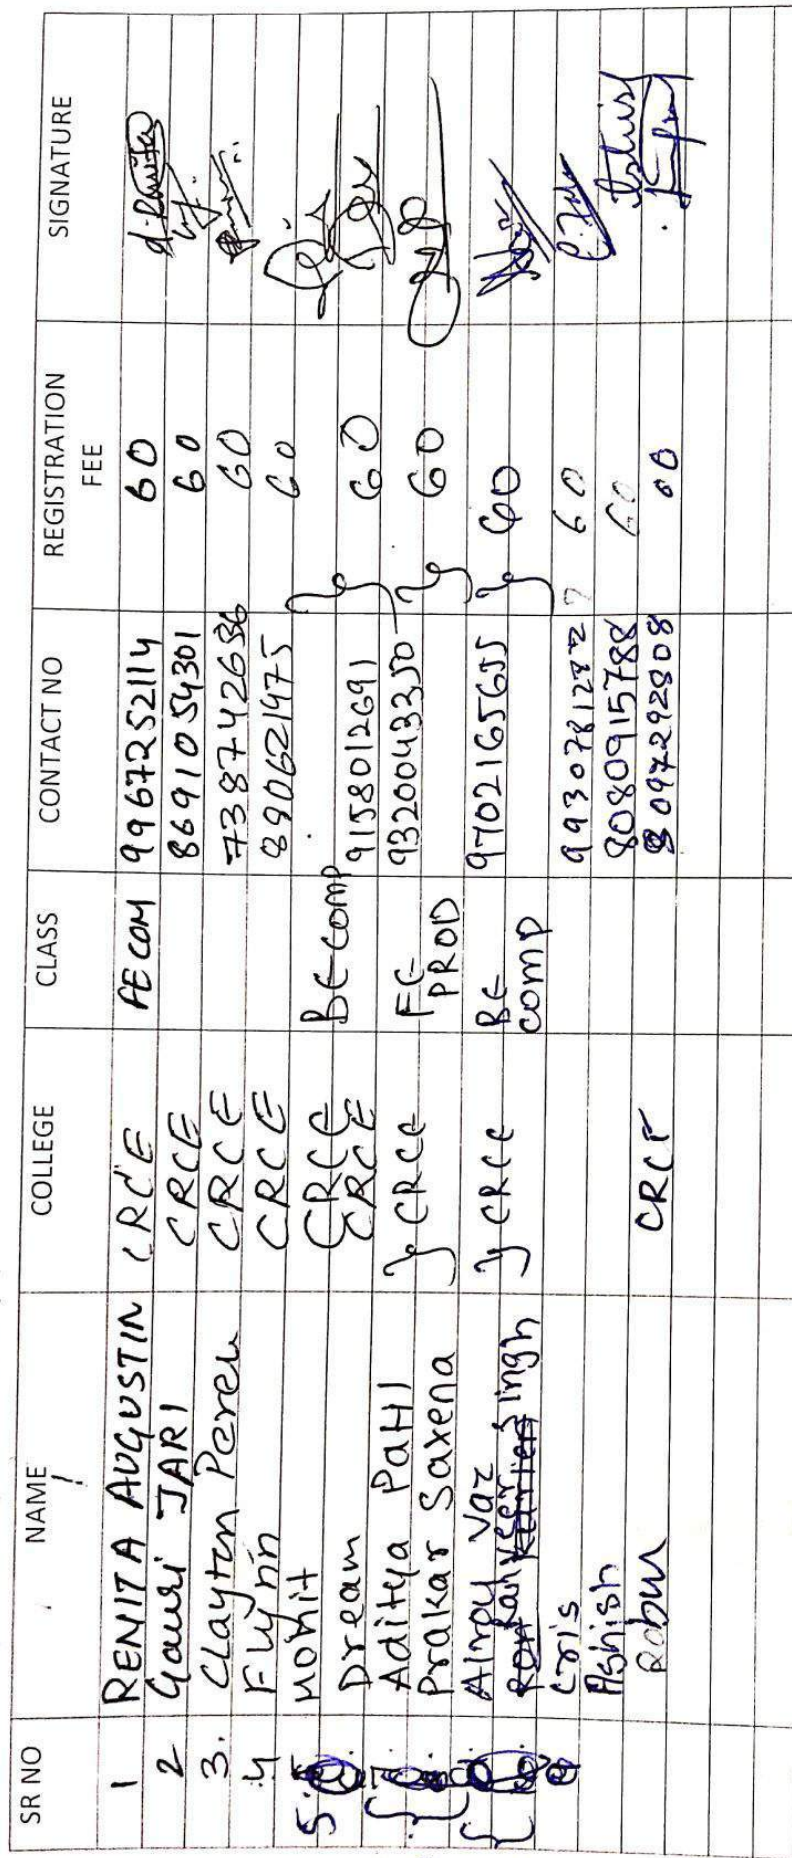 SR NO NAME COLLEGE CLASS CONTACT NO REGISTRATION FEE SIGNATURE
1 REMITA AUGUSTIN CRCE FE COM 9967252114 60
2 Gauri JARI CRCE 8691054301 60
3. Clayton CRCE 7387742686 60
4 Flynn CRCE 890621475 60
5. Mohit CRCE BE comp
Dream CRCE 9158012691 } 60
Aditya } CRCE FE PROD 9320043350 } 60
Prakar Saxena
Alroy Vaz } CRCE BE comp 9702165655 } 60
Ranveer Singh
Cris 60
Ashish 8080915788 60
Robin CRCE 8097292808 60